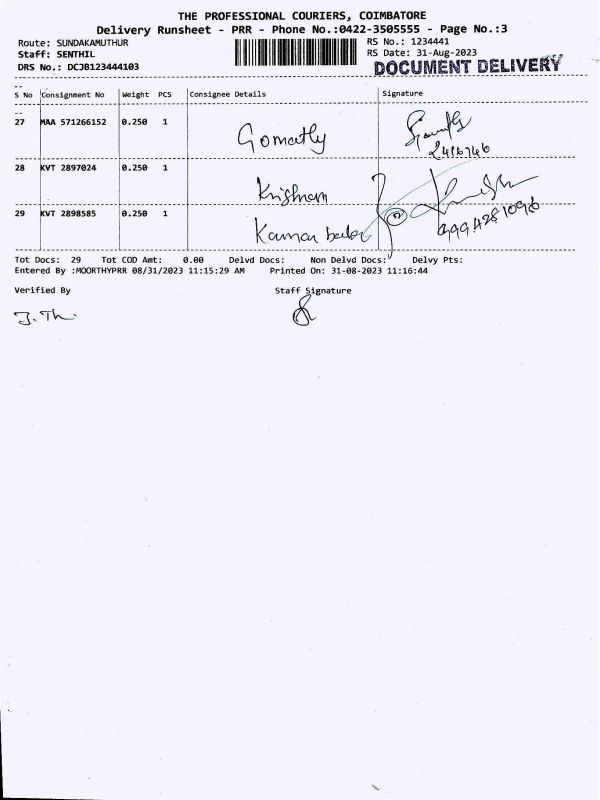 THE PROFESSIONAL COURIERS, COIMBATORE
Delivery Runsheet - PRR - Phone No.:0422-3505555 - Page No.:3
Route: SUNDAKAMUTHUR
RS No.: 1234441
Staff: SENTHIL
RS Date: 31-Aug-2023
DRS No.: DCJB123444103
DOCUMENT DELIVERY
S No Consignment No Weight PCS Consignee Details Signature
27 MAA 571266152 0.250 1 Gomathy
28 KVT 2897024 0.250 1 Krishnam
29 KVT 2898585 0.250 1 Kannan
Tot Docs: 29 Tot COD Amt: 0.00 Delvd Docs: Non Delvd Docs: Delvy Pts:
Entered By :MOORTHYPRR 08/31/2023 11:15:29 AM Printed On: 31-08-2023 11:16:44
Verified By Staff Signature
J. Th.